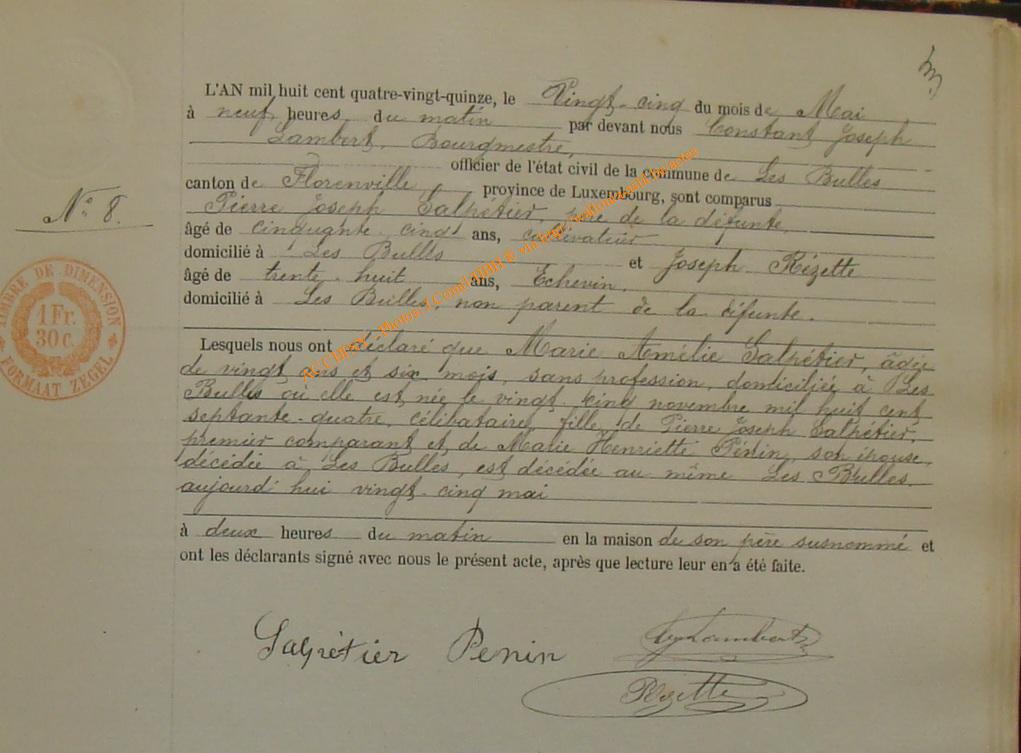 L'AN mil huit cent quatre-vingt-quinze, le Vingt-cinq du mois de Mai
à neuf heures du matin par devant nous Constant Joseph
Lambert, Bourgmestre,
officier de l'état civil de la commune de Les Bulles
canton de Florenville, province de Luxembourg, sont comparus
Pierre Joseph Salpétier, père de la défunte,
âgé de cinquante cinq ans, cultivateur
domicilié à Les Bulles et Joseph Rézette
âgé de trente-huit ans, Echevin,
domicilié à Les Bulles, non parent de la défunte.
Lesquels nous ont déclaré que Marie Amélie Salpétier, âgée
de vingt ans et six mois, sans profession, domiciliée à Les
Bulles où elle est née le vingt-cinq novembre mil huit cent
septante-quatre, célibataire, fille de Pierre Joseph Salpétier,
premier comparant et de Marie Henriette Pénin, son épouse,
décédée à Les Bulles, est décédée au même Les Bulles,
aujourd'hui vingt-cinq mai
à deux heures du matin en la maison de son père susnommé et
ont les déclarants signé avec nous le présent acte, après que lecture leur en a été faite.
Salpétier Penin Lambert
Rézette
N° 8.
TIMBRE DE DIMENSION
1 Fr.
30 c.
FORMAAT ZEGEL